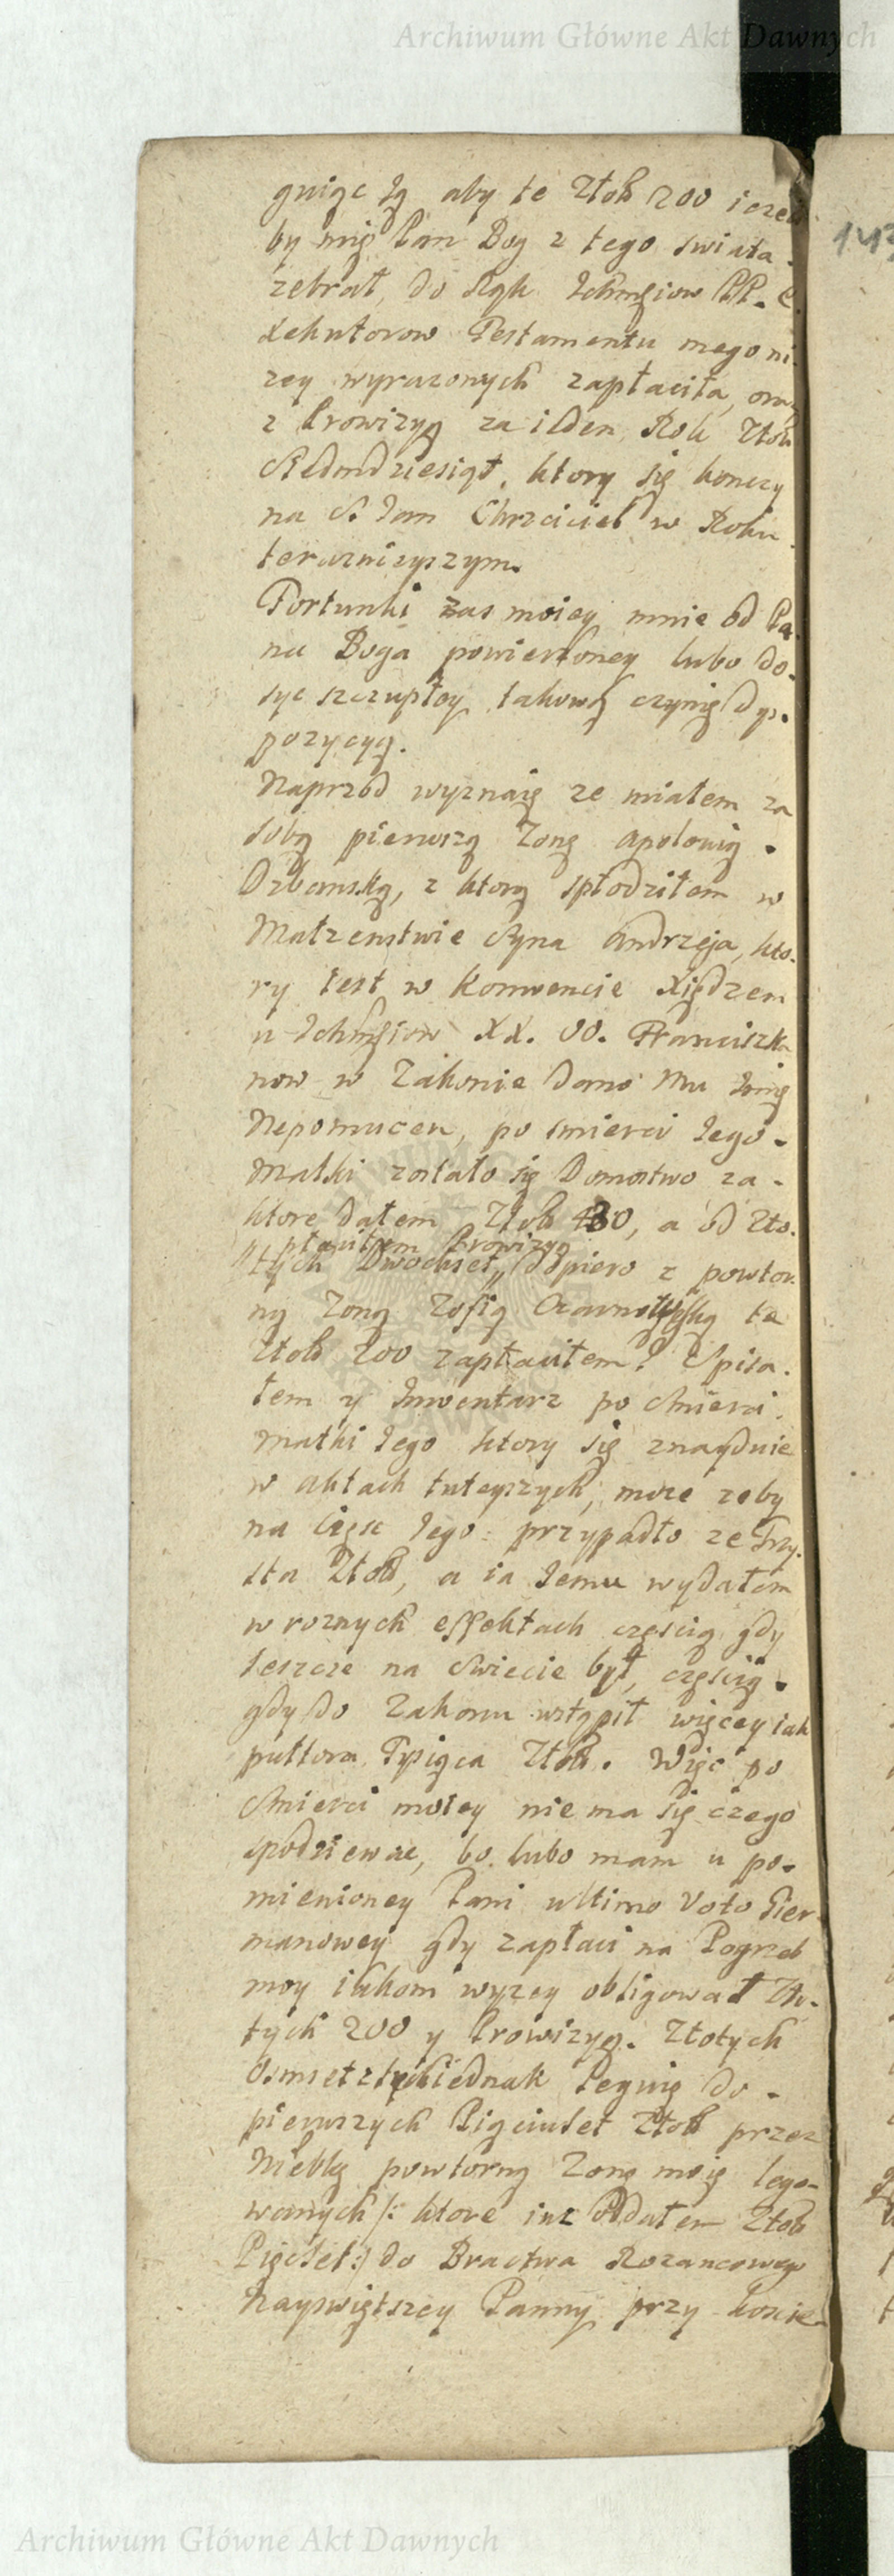 Archiwum Główne Akt Dawnych
gniąc Ją aby te Złott 200 ieze
by mię Pan Bog z tego swiata
zebrał, do Rąk Ichmsciow PP. E
xekutorow Testamentu mego ni
zey wyrazonych zapłaciła, oraz
z Prowizyą za ieden Rok Złott
Siedmdziesiąt, ktory się konczy
na S. Jan Chrzciciel w Roku
teraznieyszym.
Fortunki zas moiey mnie od Pa
na Boga powierzoney lubo do-
syc szczupłey takową czynię dys.
pozycyą.
Naprzod wyznaię ze miałem za
sobą pierwszą Zonę Apolonią
Orbanską, z ktorą spłodziłem w
Małzenstwie Syna Andrzeja, kto-
ry iest w Konwencie Xiędzem
u Ichmsciow XX. OO. Franciszka
now w Zakonie dano Mu Imię
Nepomucen, po smierci Jego
Matki zostało się Domostwo za
ktore dałem Złott 430, a od Zło-
płaciłem Prowizyą
tych Dwochset, dopiero z powtor
ną Zoną Zofią te
Złott 200 zapłaciłem. Spisa.
łem y Inwentarz po Smierci
Matki Jego ktory się znayduie
w aktach tuteyszych, moze zeby
na Częsc Jego przypadło ze Trzy.
sta Złott, a ia Jemu wydałem
w roznych effektach częscią gdy
ieszcze na Swiecie był, częscią
gdy do Zakonu wstąpił więcey iak
pułtora Tysiąca Złott. Więc po
Smierci moiey niema się czego
spodziewac, bo lubo mam u po-
mienioney Pani ultimo Voto Gier
manowey gdy zapłaci na Pogrzeb
moy iakom wyzey obligował Zło-
tych 200 y Prowizyą. Złotych
Osmset iednak Leguię do
pierwszych Pięciuset Złott przez
Niebkę powtorną Zonę moię lego-
wanych /: ktore iuz Oddałem Złott
Pięcset :/ do Bractwa Rozancowego
Nayswiętszey Panny przy koscie-
Archiwum Główne Akt Dawnych